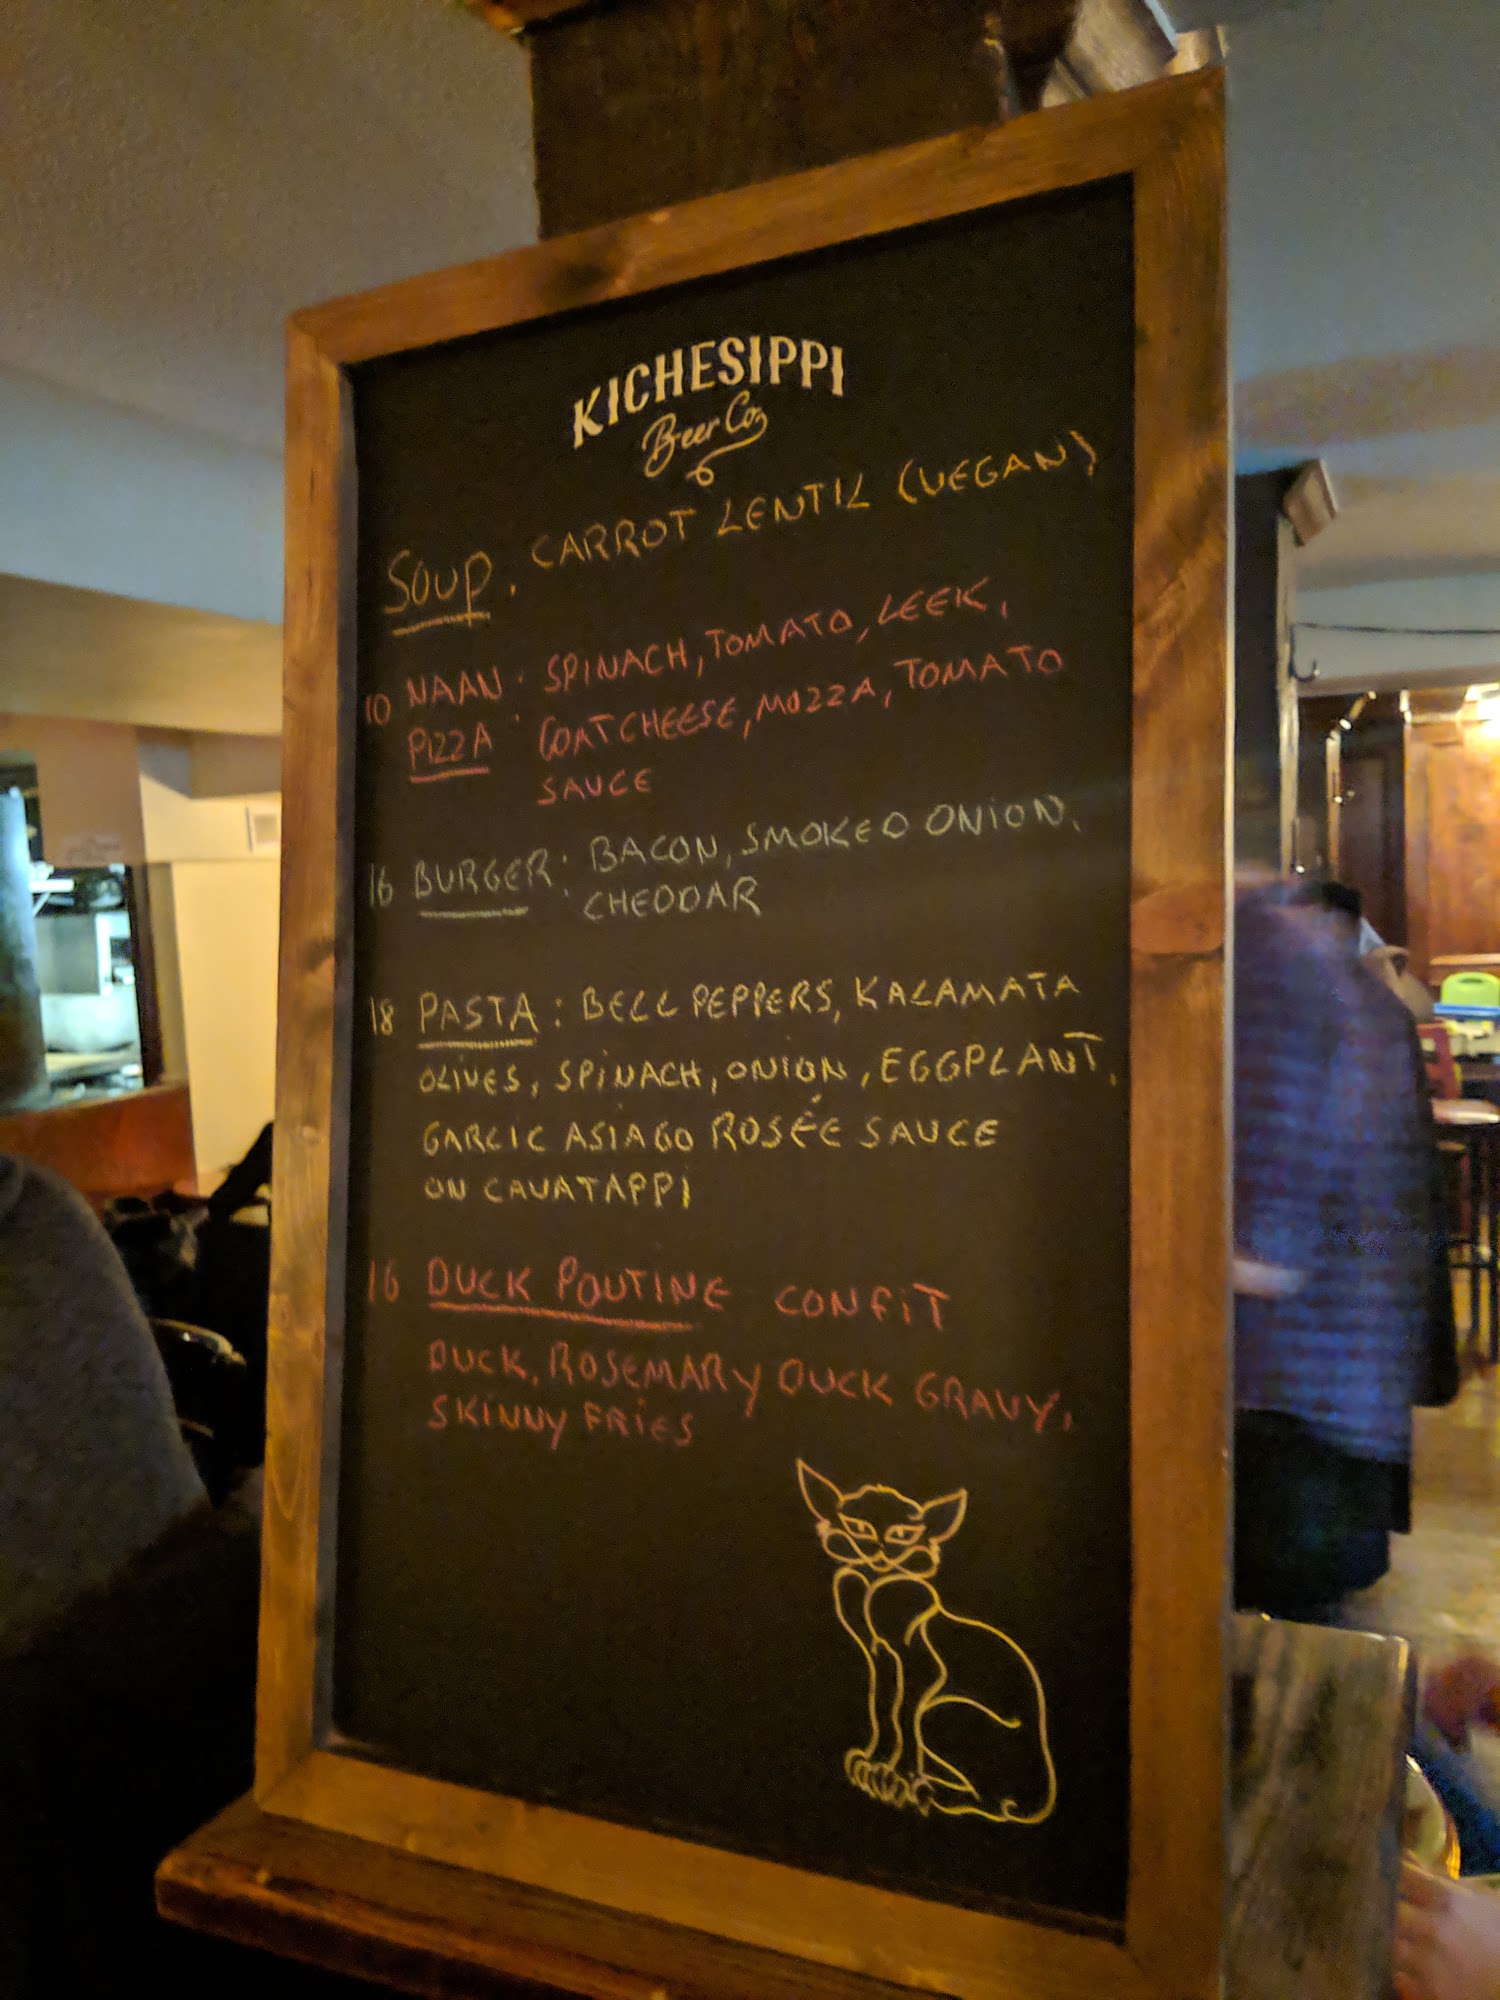 KICHESIPPI
Beer Co.
SOUP. CARROT LENTIL (VEGAN)
10 NAAN : SPINACH, TOMATO, LEEK,
PIZZA GOAT CHEESE, MOZZA, TOMATO
SAUCE
16 BURGER: BACON, SMOKED ONION,
CHEDDAR
18 PASTA: BELL PEPPERS, KALAMATA
OLIVES, SPINACH, ONION, EGGPLANT,
GARLIC ASIAGO ROSÉE SAUCE
ON CAVATAPPI
16 DUCK POUTINE CONFIT
DUCK, ROSEMARY DUCK GRAVY,
SKINNY FRIES